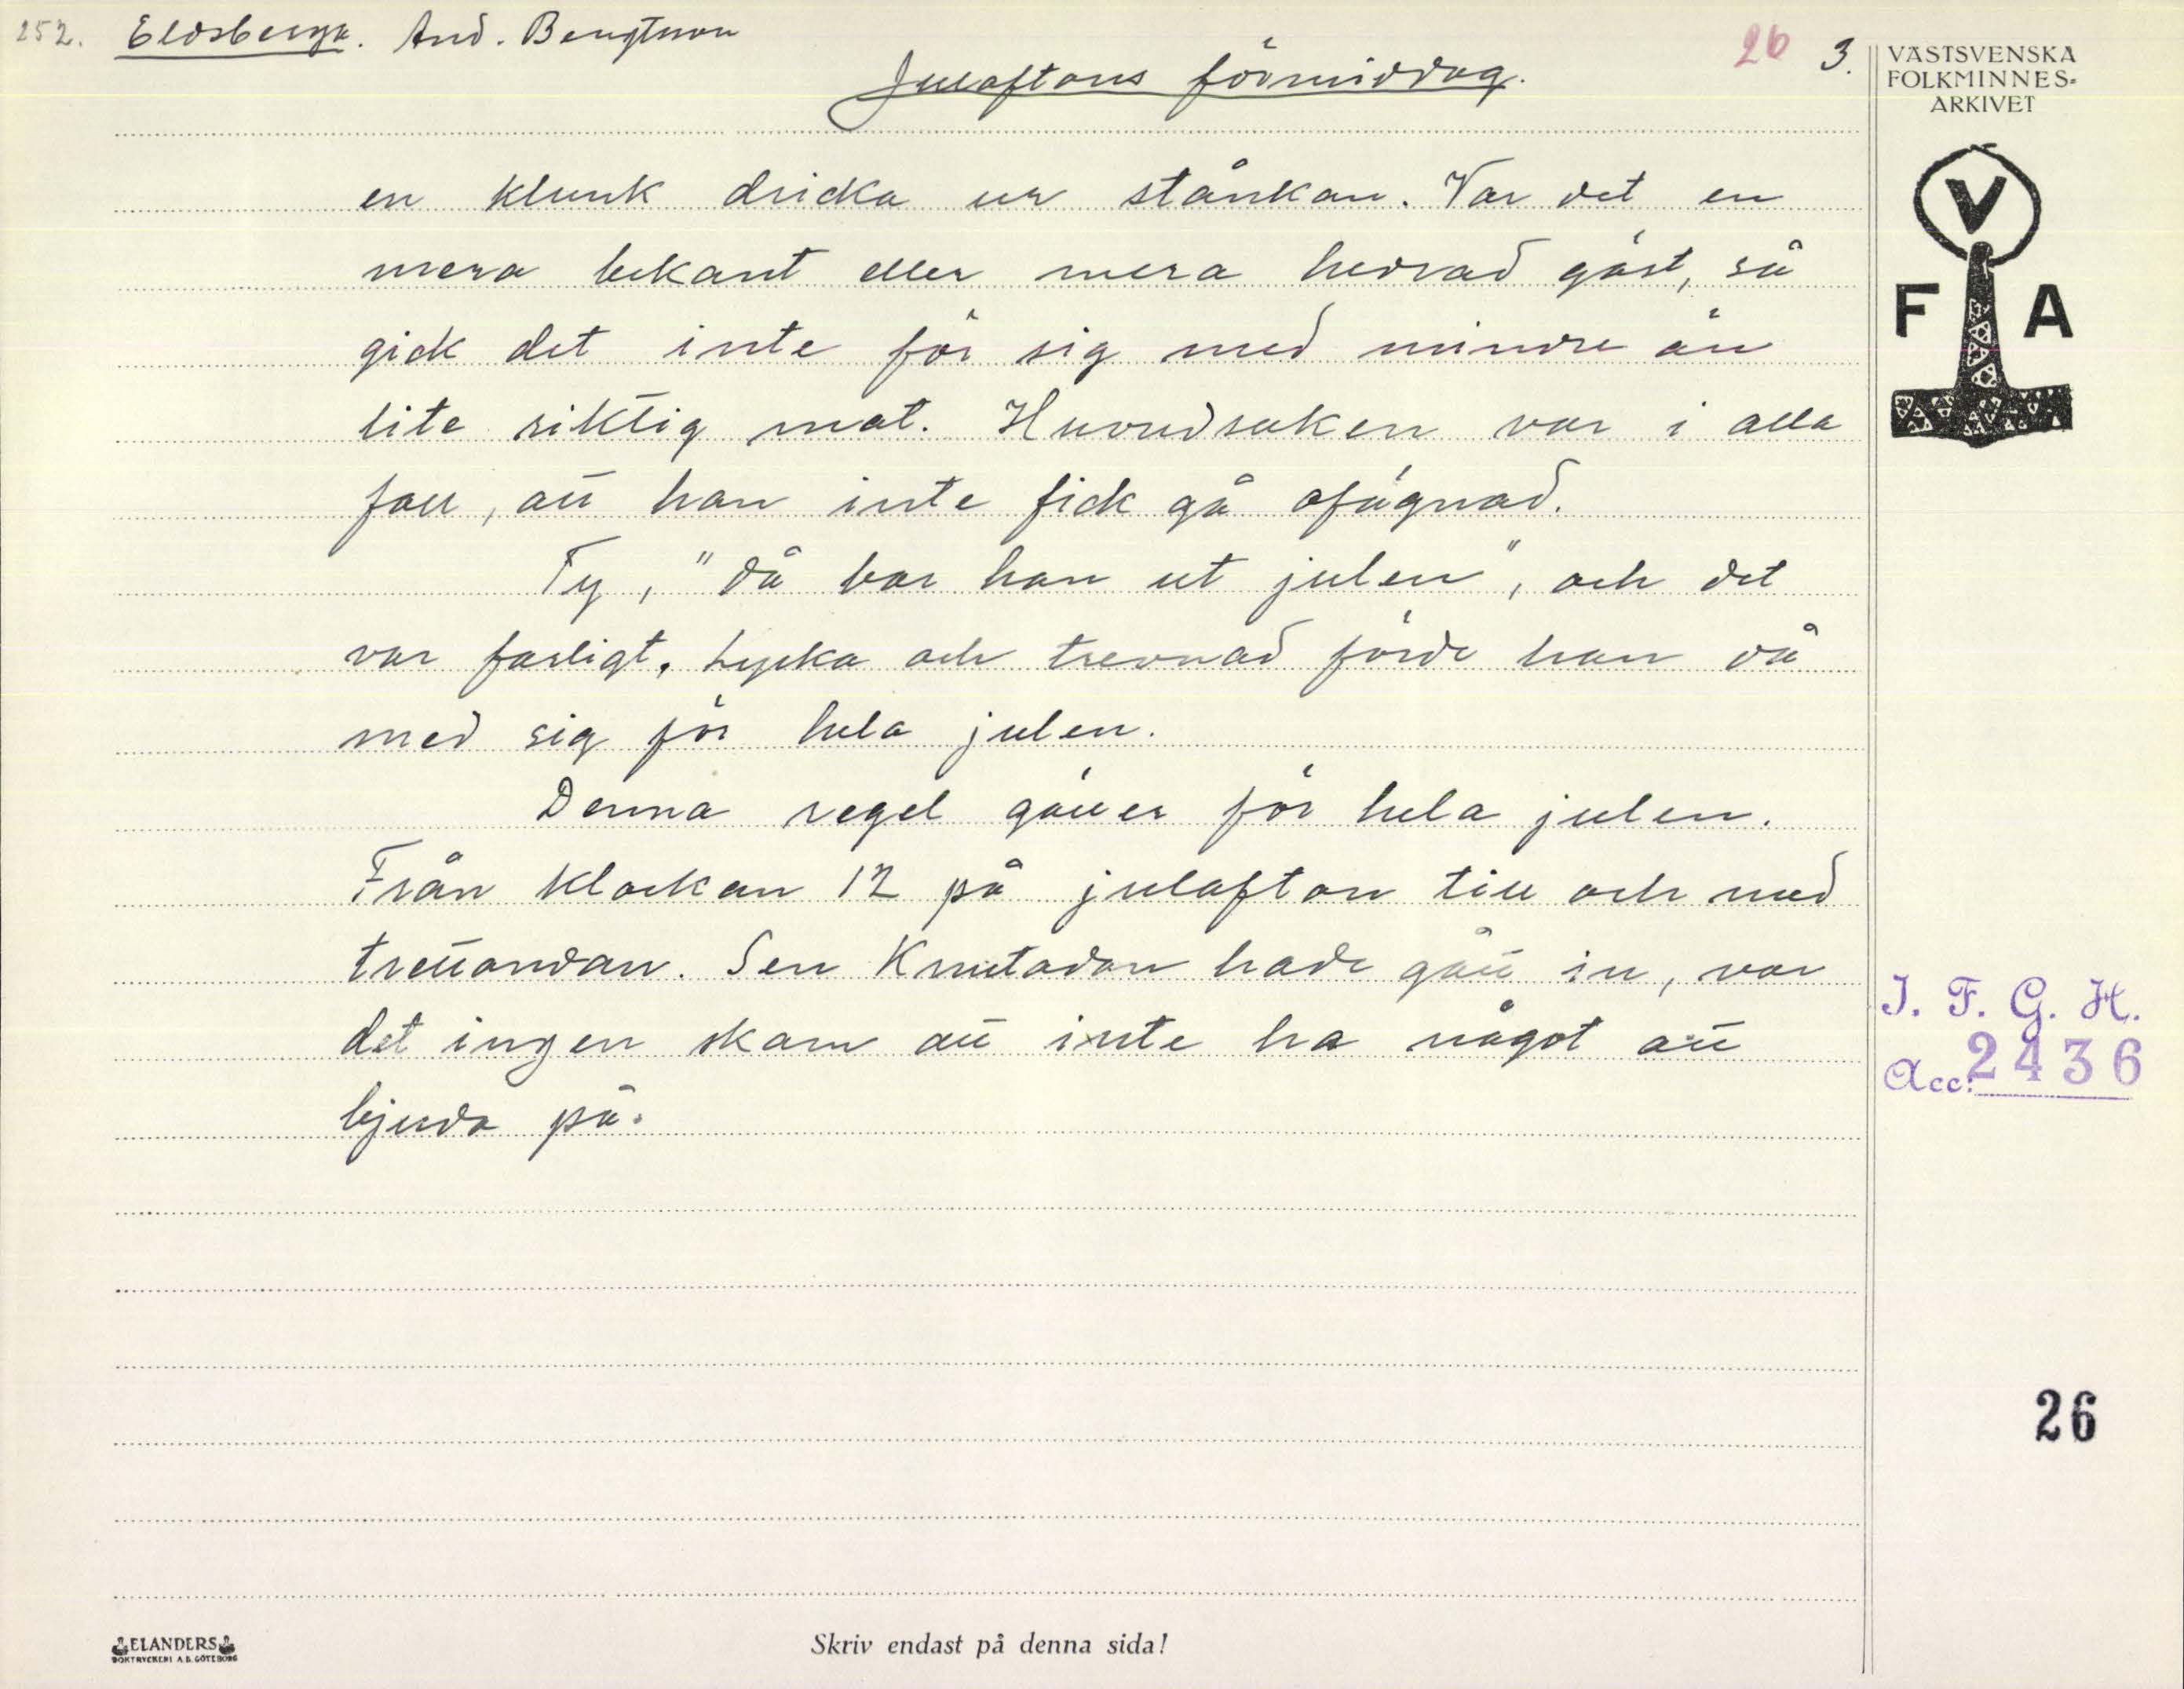 252. Eldsberga. And. Bengtsson
26 3.
Julaftons förmiddag.
VÄSTSVENSKA
FOLKMINNES-
ARKIVET
V
F A
en klunk dricka ur stånkan. Var det en
mera bekant eller mera hedrad gäst, så
gick det inte för sig med mindre än
lite riktig mat. Huvudsaken var i alla
fall, att han inte fick gå ofägnad.
Ty, "då bar han ut julen", och det
var farligt. Lycka och trevnad förde han då
med sig för hela julen.
Denna regel gäller för hela julen.
Från klockan 12 på julafton till och med
trettondan. Sen Knutadan hade gått in, var
det ingen skam att inte ha något att
bjuda på.
I. F. G. H.
Acc: 2436
26
ELANDERS
BOKTRYCKERI A.B. GÖTEBORG
Skriv endast på denna sida!